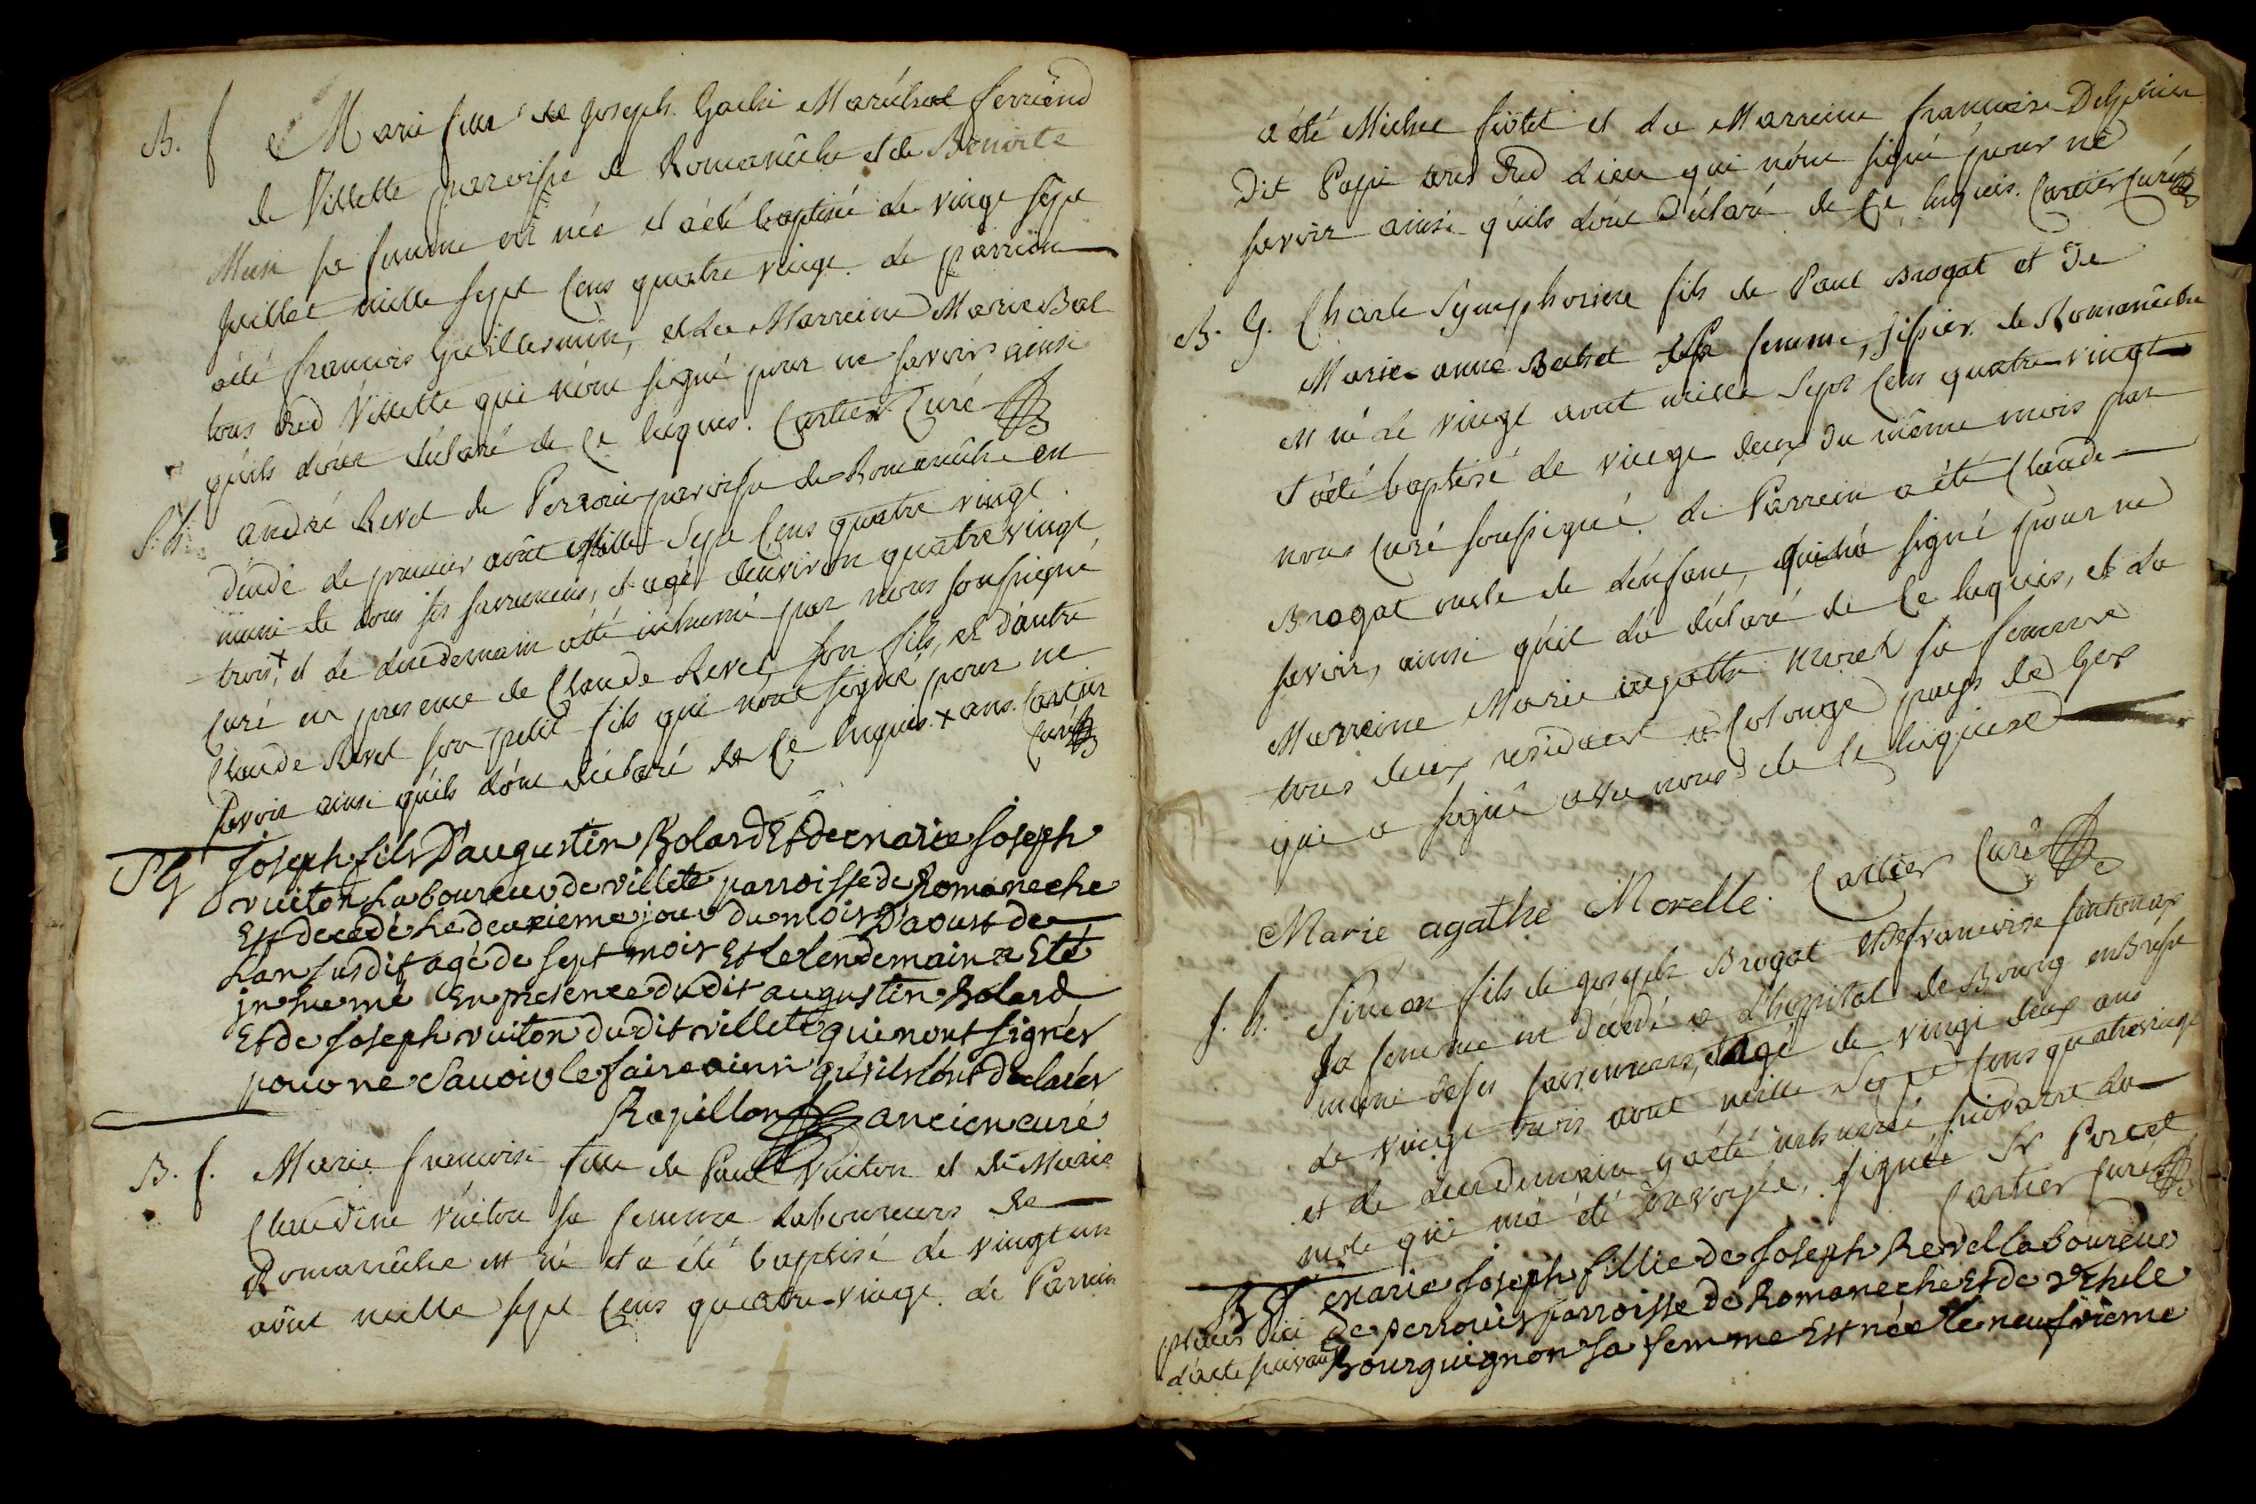 B. f Marie fille de Joseph Gache Maréchal ferrand
de Villette paroisse de Romanêche et de Benoite
Muni sa femme est née et a été baptisé le vingt sept
Juillet mille sept cens quatre vingt. le parrein
a été francois Guillermin, et la Marreine Marie Bal
tous dud Villette qui n'ont signé pour ne savoir ainsi
qu'ils l'ont déclaré de ce enquis. Cartier Curé
S. h. andré Revel de Perroüi paroisse de Romanêche est
décédé le premier août mille sept cens quatre vingt.
muni de tous ses sacremens, et agé d'environ quatre vingt
trois,+ et le lendemain a été inhumé par nous soussigné
Curé en presence de Claude Revel son fils, et d'autre
Claude Revel son petit fils qui n'ont signé pour ne
savoir ainsi qu'ils l'ont déclaré de ce enquis. + ans. Cartier
Curé
SG Joseph fils D'augustin Bolard Et de marie Joseph
vuiton Laboureur de villete parroisse de Romaneche
Est decedé le deuxieme jour du mois D'aoust de
L'an susdit agé de sept mois Et le lendemain a Eté
inhumé En presence dudit augustin Bolard
Et de Joseph vuiton dudit villete qui n'ont signés
pour ne savoir le faire ainsi qu'ils l'ont declarés
Rapillon ancien curé
B. f. Marie francoise fille de Paul Vuiton et de Marie
Claudine Vuiton sa femme laboureurs de
Romanêche est né et a été baptisé le vingt un
août mille sept cens quatre-vingt. le Parrein
a été Michel et la Marreine francoise
Dit tous dud lieu qui n'ont signé pour ne
savoir ainsi qu'ils l'ont déclaré de ce enquis. Cartier Curé
B. G. Charle Symphorien fils de Paul Brogat et de
Marie-anne Bertet sa femme, de Romanêche
est né le vingt aout mille sept cens quatre-vingt
et a été baptisé le vingt deux du même mois par
nous Curé soussigné. le Parrein a été Claude
Brogat oncle de l'enfant, qui n'a signé pour ne
savoir, ainsi qu'il l'a déclaré de ce enquis, et la
Marreine Marie agathe Morel sa femme
tous deux residant à Colonge pays de Gex
qui a signé avec nous de ce enquise
Marie agathe Morelle. Cartier Curé
S. h. Simeon fils de joseph Brogat et de francoise
sa femme est décédé à L'hospital de Bourg en Bresse
muni de ses sacremens, et agé de vingt deux ans
le vingt trois aout mille sept cens quatre vingt
et le lendemain y a été inhumé suivant la
note qui m'a été envoyée, signée Sr Poncet
Cartier Curé
B f marie Joseph fillie de Joseph Revel laboureur
de perrouis parroisse de Romaneche Et de
placés ici
l'acte suivant Bourguignon sa femme Est née le neufvième